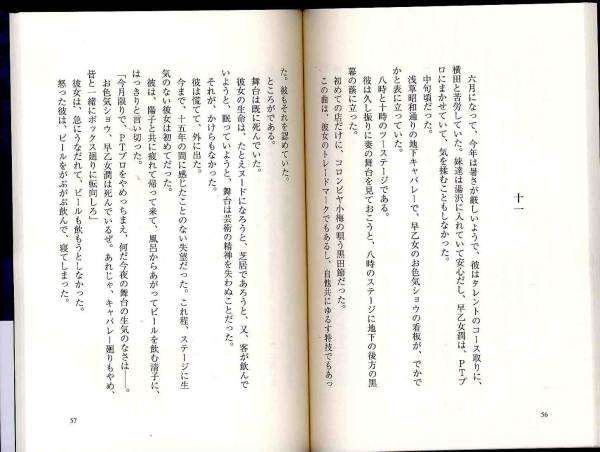 十一
六月になって、今年は暑さが厳しいようで、彼はタレントのコース取りに、
横田と苦労していた。妹達は湯沢に入れていて安心だし、早乙女潤は、PTプ
ロにまかせていて、気を揉むこともしなかった。
中旬頃だった。
浅草昭和通りの地下キャバレーで、早乙女のお色気ショウの看板が、でかで
かと表に立っていた。
八時と十時のツーステージである。
彼は久し振りに妻の舞台を見ておこうと、八時のステージに地下の後方の黒
幕の蔭に立った。
初めての店だけに、コロンビヤ小梅の唄う黒田節だった。
この曲は、彼女のトレードマークでもあるし、自他共にゆるす特技でもあっ
56
た。彼もそれを認めていた。
ところがである。
舞台は既に死んでいた。
彼女の生命は、たとえヌードになろうと、芝居であろうと、又、客が飲んで
いようと、眠っていようと、舞台は芸術の精神を失わぬことだった。
それが、かけらもなかった。
彼は慌てて、外に出た。
今まで、十五年の間に感じたことのない失望だった。これ程、ステージに生
気のない彼女は初めてだった。
彼は、陽子と共に疲れて帰って来て、風呂からあがってビールを飲む清子に、
はっきりと言い切った。
「今月限りで、PTプロをやめっちまえ、何だ今夜の舞台の生気のなさは――。
お色気ショウ、早乙女潤は死んでいるぜ。あれじゃ、キャバレー廻りもやめ、
皆と一緒にボックス廻りに転向しろ」
彼女は、急にうなだれて、ビールも飲もうとしなかった。
怒った彼は、ビールをがぶがぶ飲んで、寝てしまった。
57